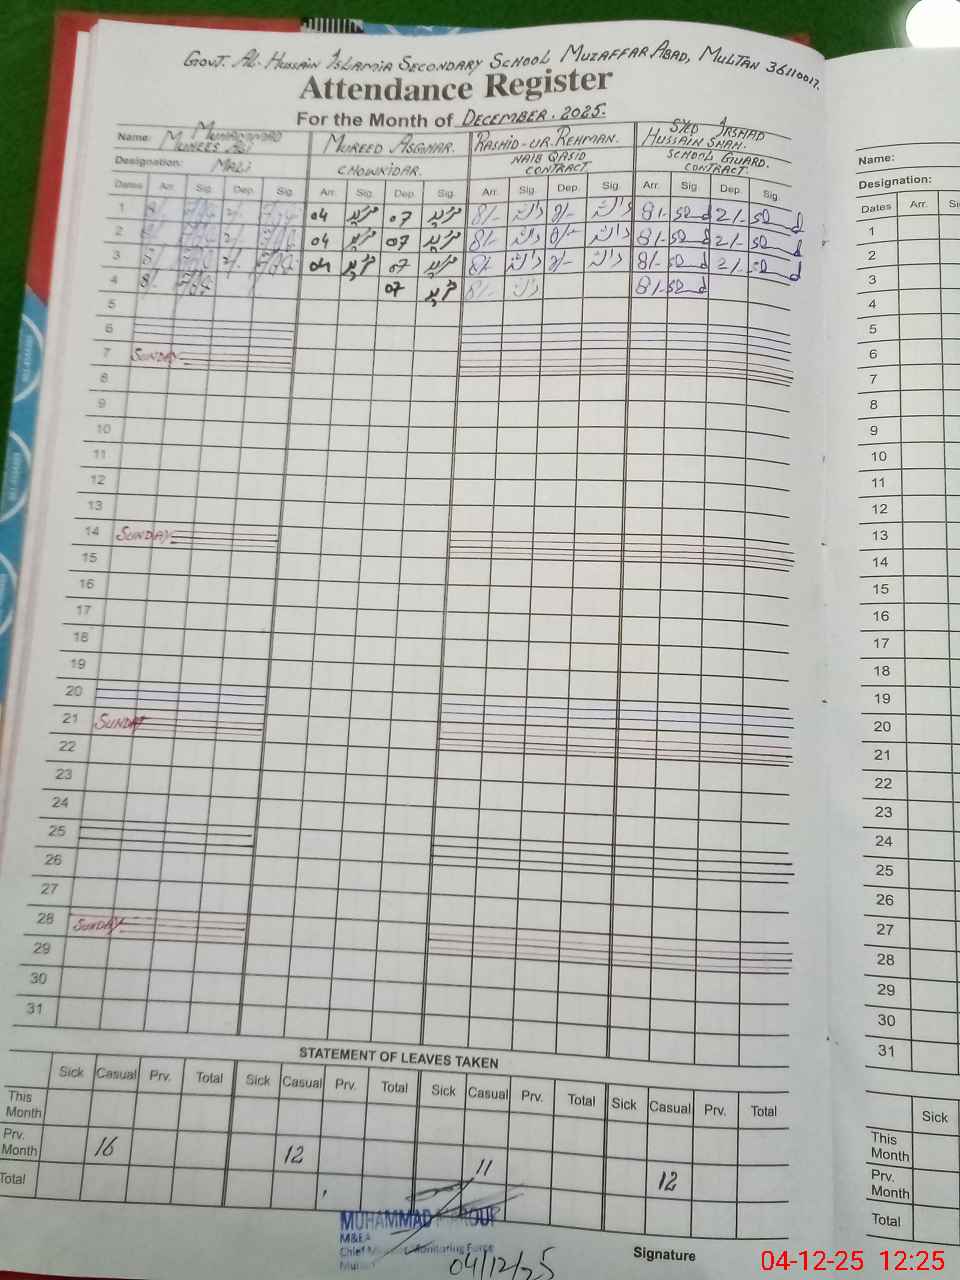 GOVT. AL-HUSSAIN ISLAMIA SECONDARY SCHOOL MUZAFFAR ABAD, MULTAN 36110017.
Attendance Register
For the Month of DECEMBER. 2025.
Name: MUHAMMAD MUREED ASGHAR. RASHID-UR-REHMAN. SYED IRSHAD HUSSAIN SHAH.
Designation: MALI CHOWKIDAR. NAIB QASID CONTRACT SCHOOL GUARD. CONTRACT.
Dates Arr. Sig. Dep. Sig. Arr. Sig. Dep. Sig. Arr. Sig. Dep. Sig. Arr. Sig. Dep. Sig.
1 8/- 2/- 04 07 8/- 8/- 2/-
2 2/- 04 07 8/- 8/- 2/-
3 8/- 2/- 04 07 8/- 2/- 8/- 2/-
4 8/- 07 8/- 8/-
5
6
7 SUNDAY
8
9
10
11
12
13
14 SUNDAY
15
16
17
18
19
20
21 SUNDAY
22
23
24
25
26
27
28 SUNDAY
29
30
31
STATEMENT OF LEAVES TAKEN
Sick Casual Prv. Total Sick Casual Prv. Total Sick Casual Prv. Total Sick Casual Prv. Total
This Month
Prv. Month 16 12 11 12
Total
MUHAMMAD
M&EA
Chief Monitoring Force
04/12/25
Signature
Name:
Designation:
Dates Arr.
1
2
3
4
5
6
7
8
9
10
11
12
13
14
15
16
17
18
19
20
21
22
23
24
25
26
27
28
29
30
31
Sick
This Month
Prv. Month
Total
04-12-25 12:25